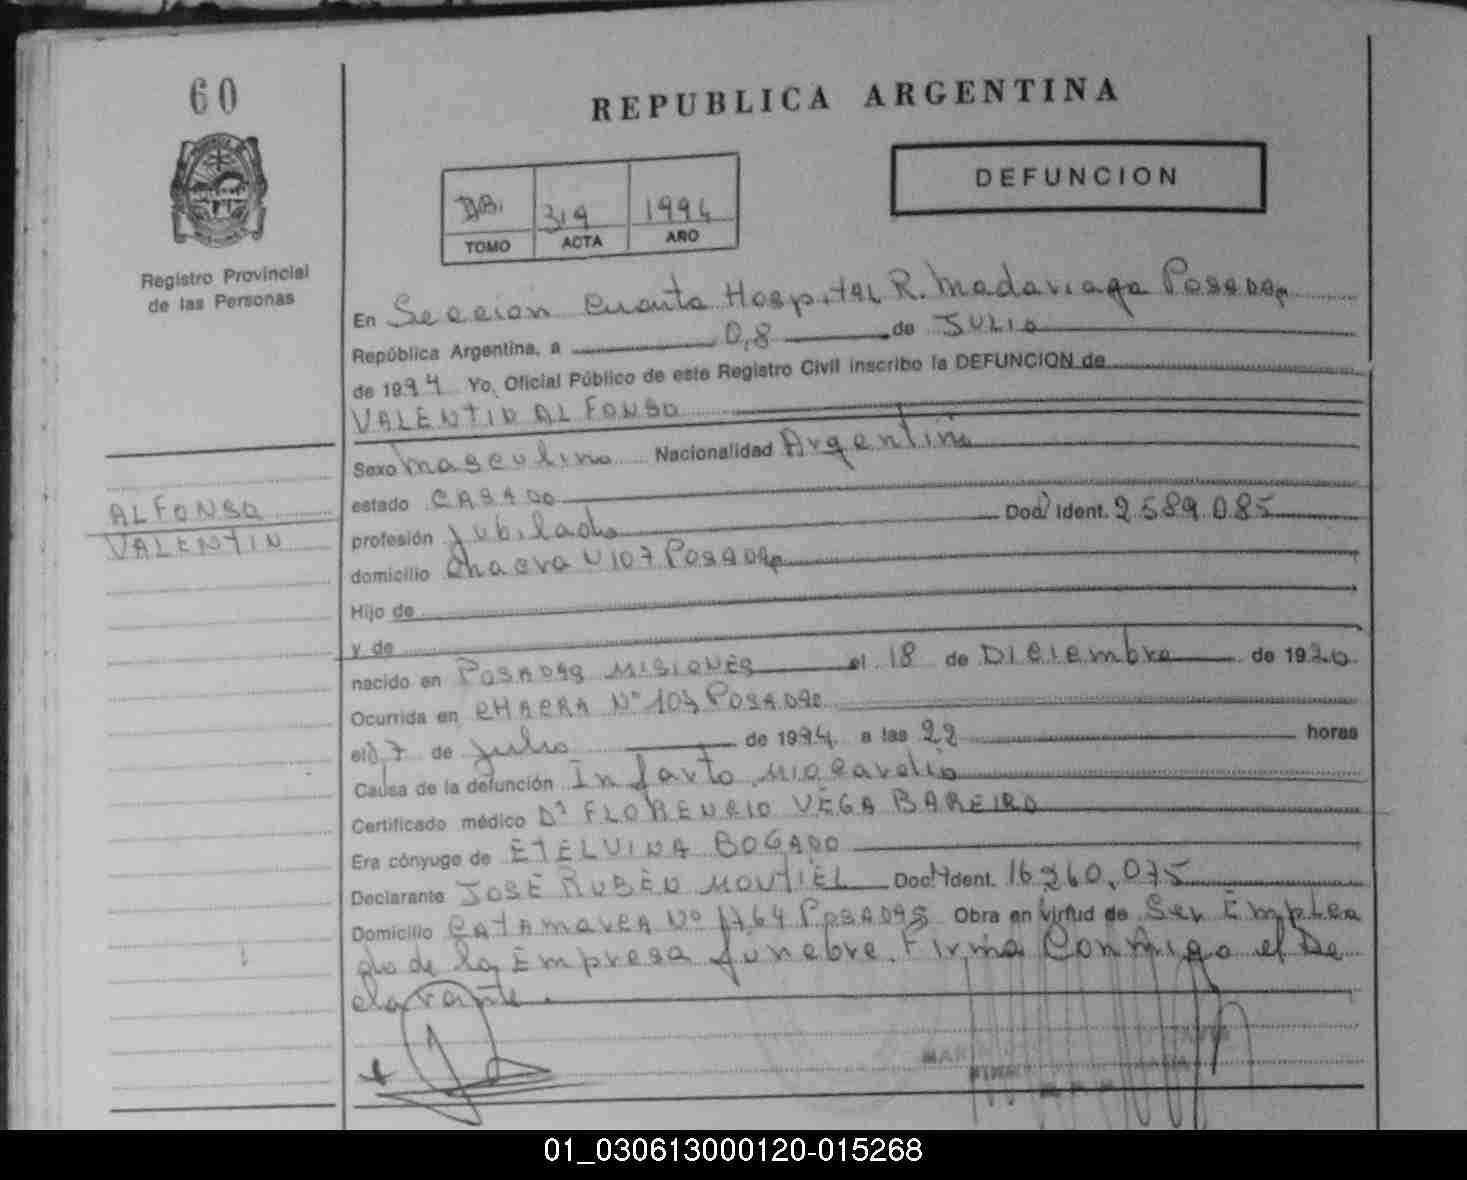 60
REPUBLICA ARGENTINA
DEFUNCION
319 1994
TOMO ACTA AÑO
Registro Provincial
de las Personas
En Seccion Cuarta Hospital R. Madariaga Posadas
República Argentina, a 0,8 de JULIO
de 1994 Yo, Oficial Público de este Registro Civil inscribo la DEFUNCION de
VALENTIN ALFONSO
Sexo Masculino Nacionalidad Argentin
ALFONSO
VALENTIN
estado CASADO
profesión Jubilado Doc. Ident. 2.589.085
domicilio Chacra N 107 Posadas
Hijo de
y de
nacido en POSADAS MISIONES el 18 de DICIEMBRE de 1920
Ocurrida en CHACRA Nº 107 POSADAS
el 07 de Julio de 1994 a las 22 horas
Causa de la defunción Infarto Miocardio
Certificado médico Dr FLORENCIO VEGA BAREIRO
Era cónyuge de ETELVINA BOGADO
Declarante JOSÉ RUBÉN MONTIEL Doc. Ident. 16.260.075
Domicilio CATAMARCA Nº 1764 POSADAS Obra en virtud de Ser Emplea
do de la Empresa funebre. Firma Conmigo el De
clarante.
01_030613000120-015268